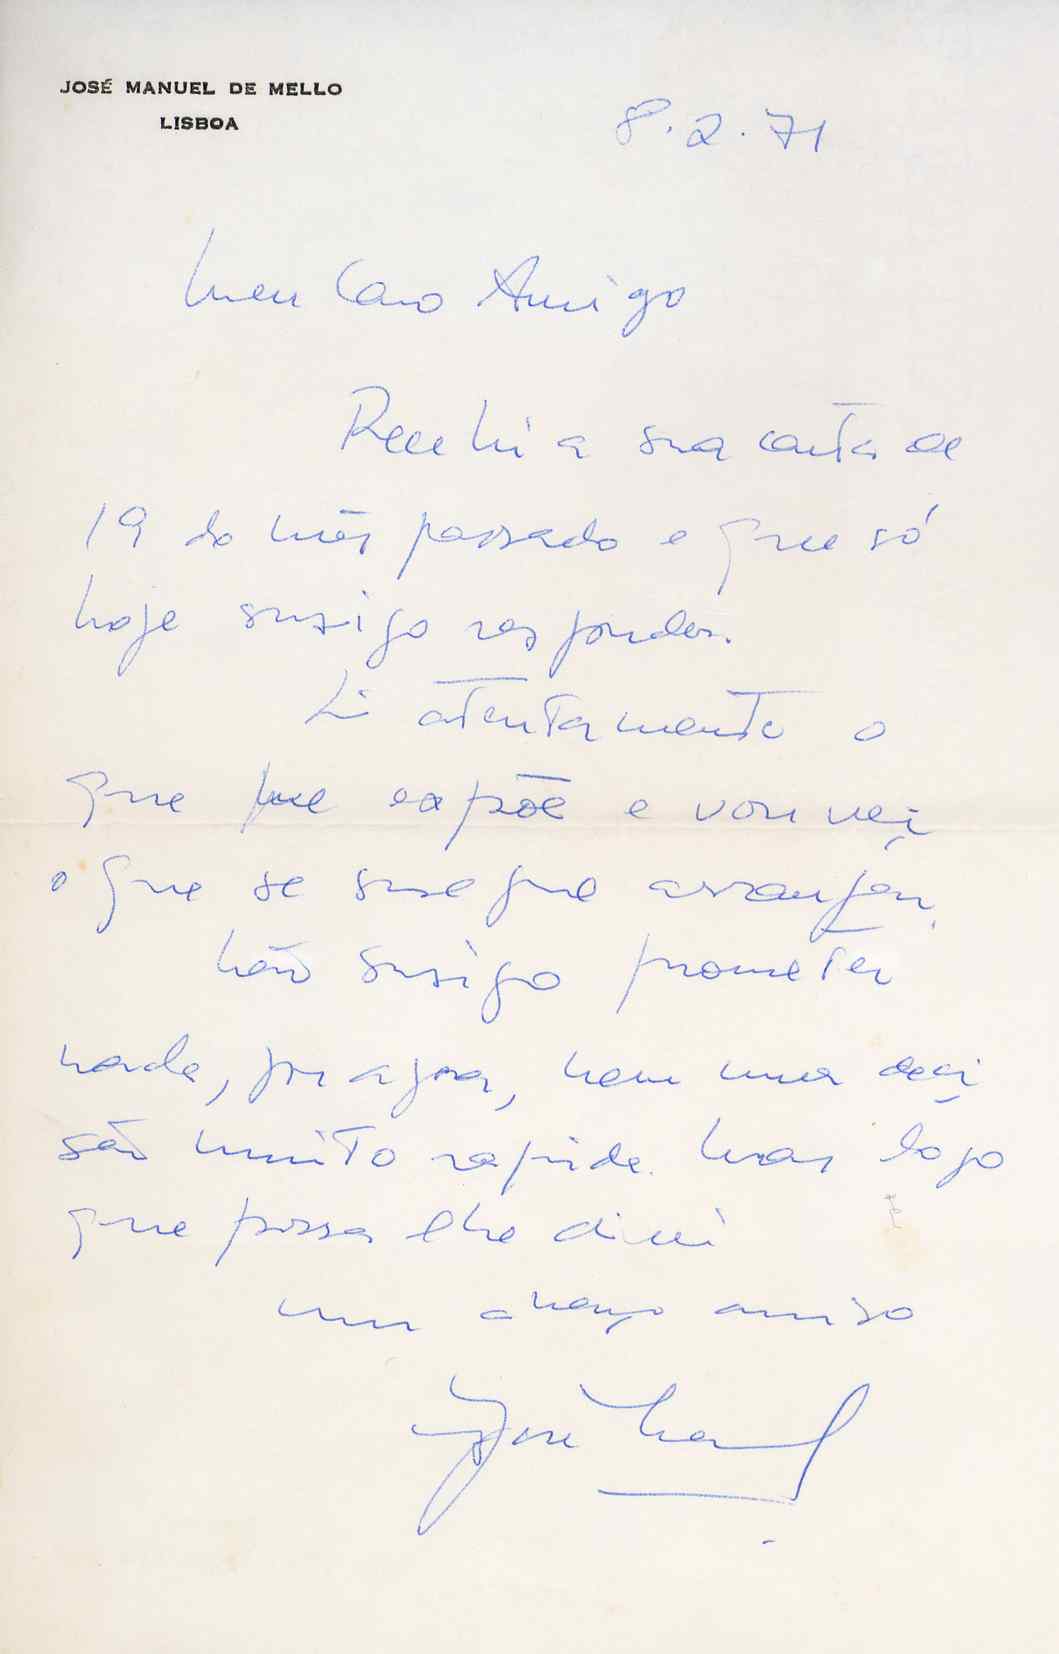 JOSÉ MANUEL DE MELLO
LISBOA
8.2.71
Meu Caro Amigo
Recebi a sua carta de
19 do mês passado e que só
hoje consigo responder.
Li atentamente o
que me expõe e vou ver
o que se consegue arranjar.
Não consigo prometer
nada, por agora, nem uma deci
são muito rapida. Mas logo
que possa lhe direi
um abraço amigo
José Manuel